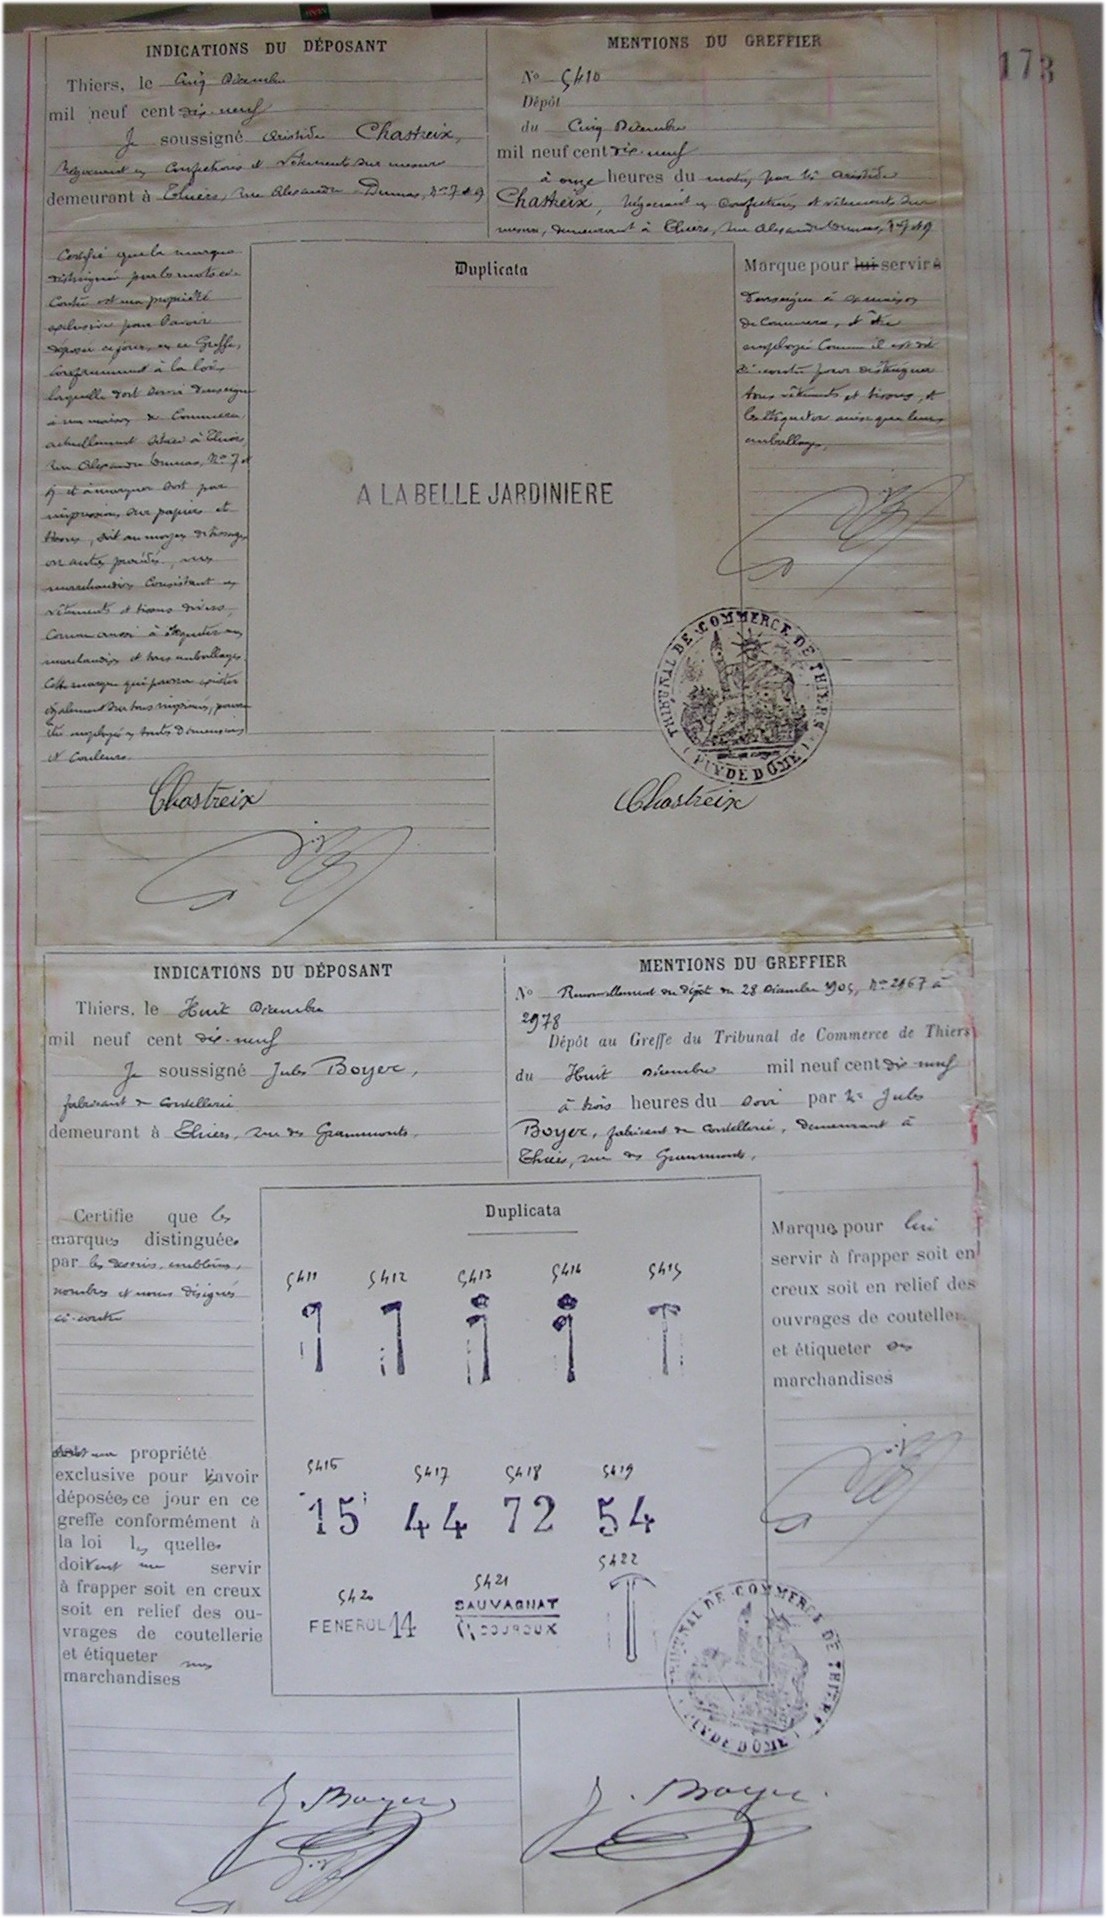 173
INDICATIONS DU DÉPOSANT
Thiers, le Cinq Décembre
mil neuf cent dix-neuf
Je soussigné Aristide Chastreix,
Négociant en Confections et Vêtements sur mesure
demeurant à Thiers, rue Alexandre Dumas, Nos 7 et 9
MENTIONS DU GREFFIER
No 5410
Dépôt
du Cinq Décembre
mil neuf cent dix-neuf
à onze heures du matin, par Mr Aristide
Chastreix, Négociant en Confections et vêtements sur
mesure, demeurant à Thiers, rue Alexandre Dumas, Nos 7 et 9
Certifie que la marque
distinguée par les mots ci-
contre est ma propriété
exclusive pour l'avoir
déposée ce jour, en ce Greffe,
conformément à la loi,
laquelle doit servir d'enseigne
à ma maison de Commerce
actuellement située à Thiers,
rue Alexandre Dumas, Nos 7 et
9 et à marquer soit par
impression sur papiers et
tissus, soit au moyen de tissage
ou autres procédés, mes
marchandises Consistant en
vêtements et tissus divers,
Comme aussi à étiqueter mes
marchandises et tous emballages.
Cette marque qui pourra exister
également sur tous imprimés, pourra
être employée en toutes dimensions
et Couleurs.
Duplicata
A LA BELLE JARDINIERE
Marque pour lui servir à
d'enseigne à sa maison
de Commerce, et être
employée Comme il est dit
ci-contre pour distinguer
tous vêtements et tissus, et
les étiqueter ainsi que leurs
emballages.
TRIBUNAL DE COMMERCE DE THIERS
(PUY DE DÔME)
Chastreix
Chastreix
INDICATIONS DU DÉPOSANT
Thiers, le Huit Décembre
mil neuf cent dix-neuf
Je soussigné Jules Boyer,
fabricant de Coutellerie
demeurant à Thiers, rue des Grammonts,
MENTIONS DU GREFFIER
No Renouvellement du dépôt du 28 Décembre 1905, Nos 2967 à
2978
Dépôt au Greffe du Tribunal de Commerce de Thiers
du Huit Décembre mil neuf cent dix neuf
à trois heures du soir par Mr Jules
Boyer, fabricant de Coutellerie, demeurant à
Thiers, rue des Grammonts.
Certifie que les
marques distinguées
par les dessins, emblèmes,
nombres et noms désignés
ci-contre
sont ma propriété
exclusive pour les avoir
déposées ce jour en ce
greffe conformément à
la loi lesquelles
doivent me servir
à frapper soit en creux
soit en relief des ou-
vrages de coutellerie
et étiqueter mes
marchandises
Duplicata
5411 5412 5413 5414 5415
5416 5417 5418 5419
15 44 72 54
5420 5421 5422
FENEROL 14
SAUVAGNAT
COUROUX
Marques pour lui
servir à frapper soit en
creux soit en relief des
ouvrages de coutellerie
et étiqueter ses
marchandises
TRIBUNAL DE COMMERCE DE THIERS
(PUY DE DÔME)
J. Boyer
J. Boyer